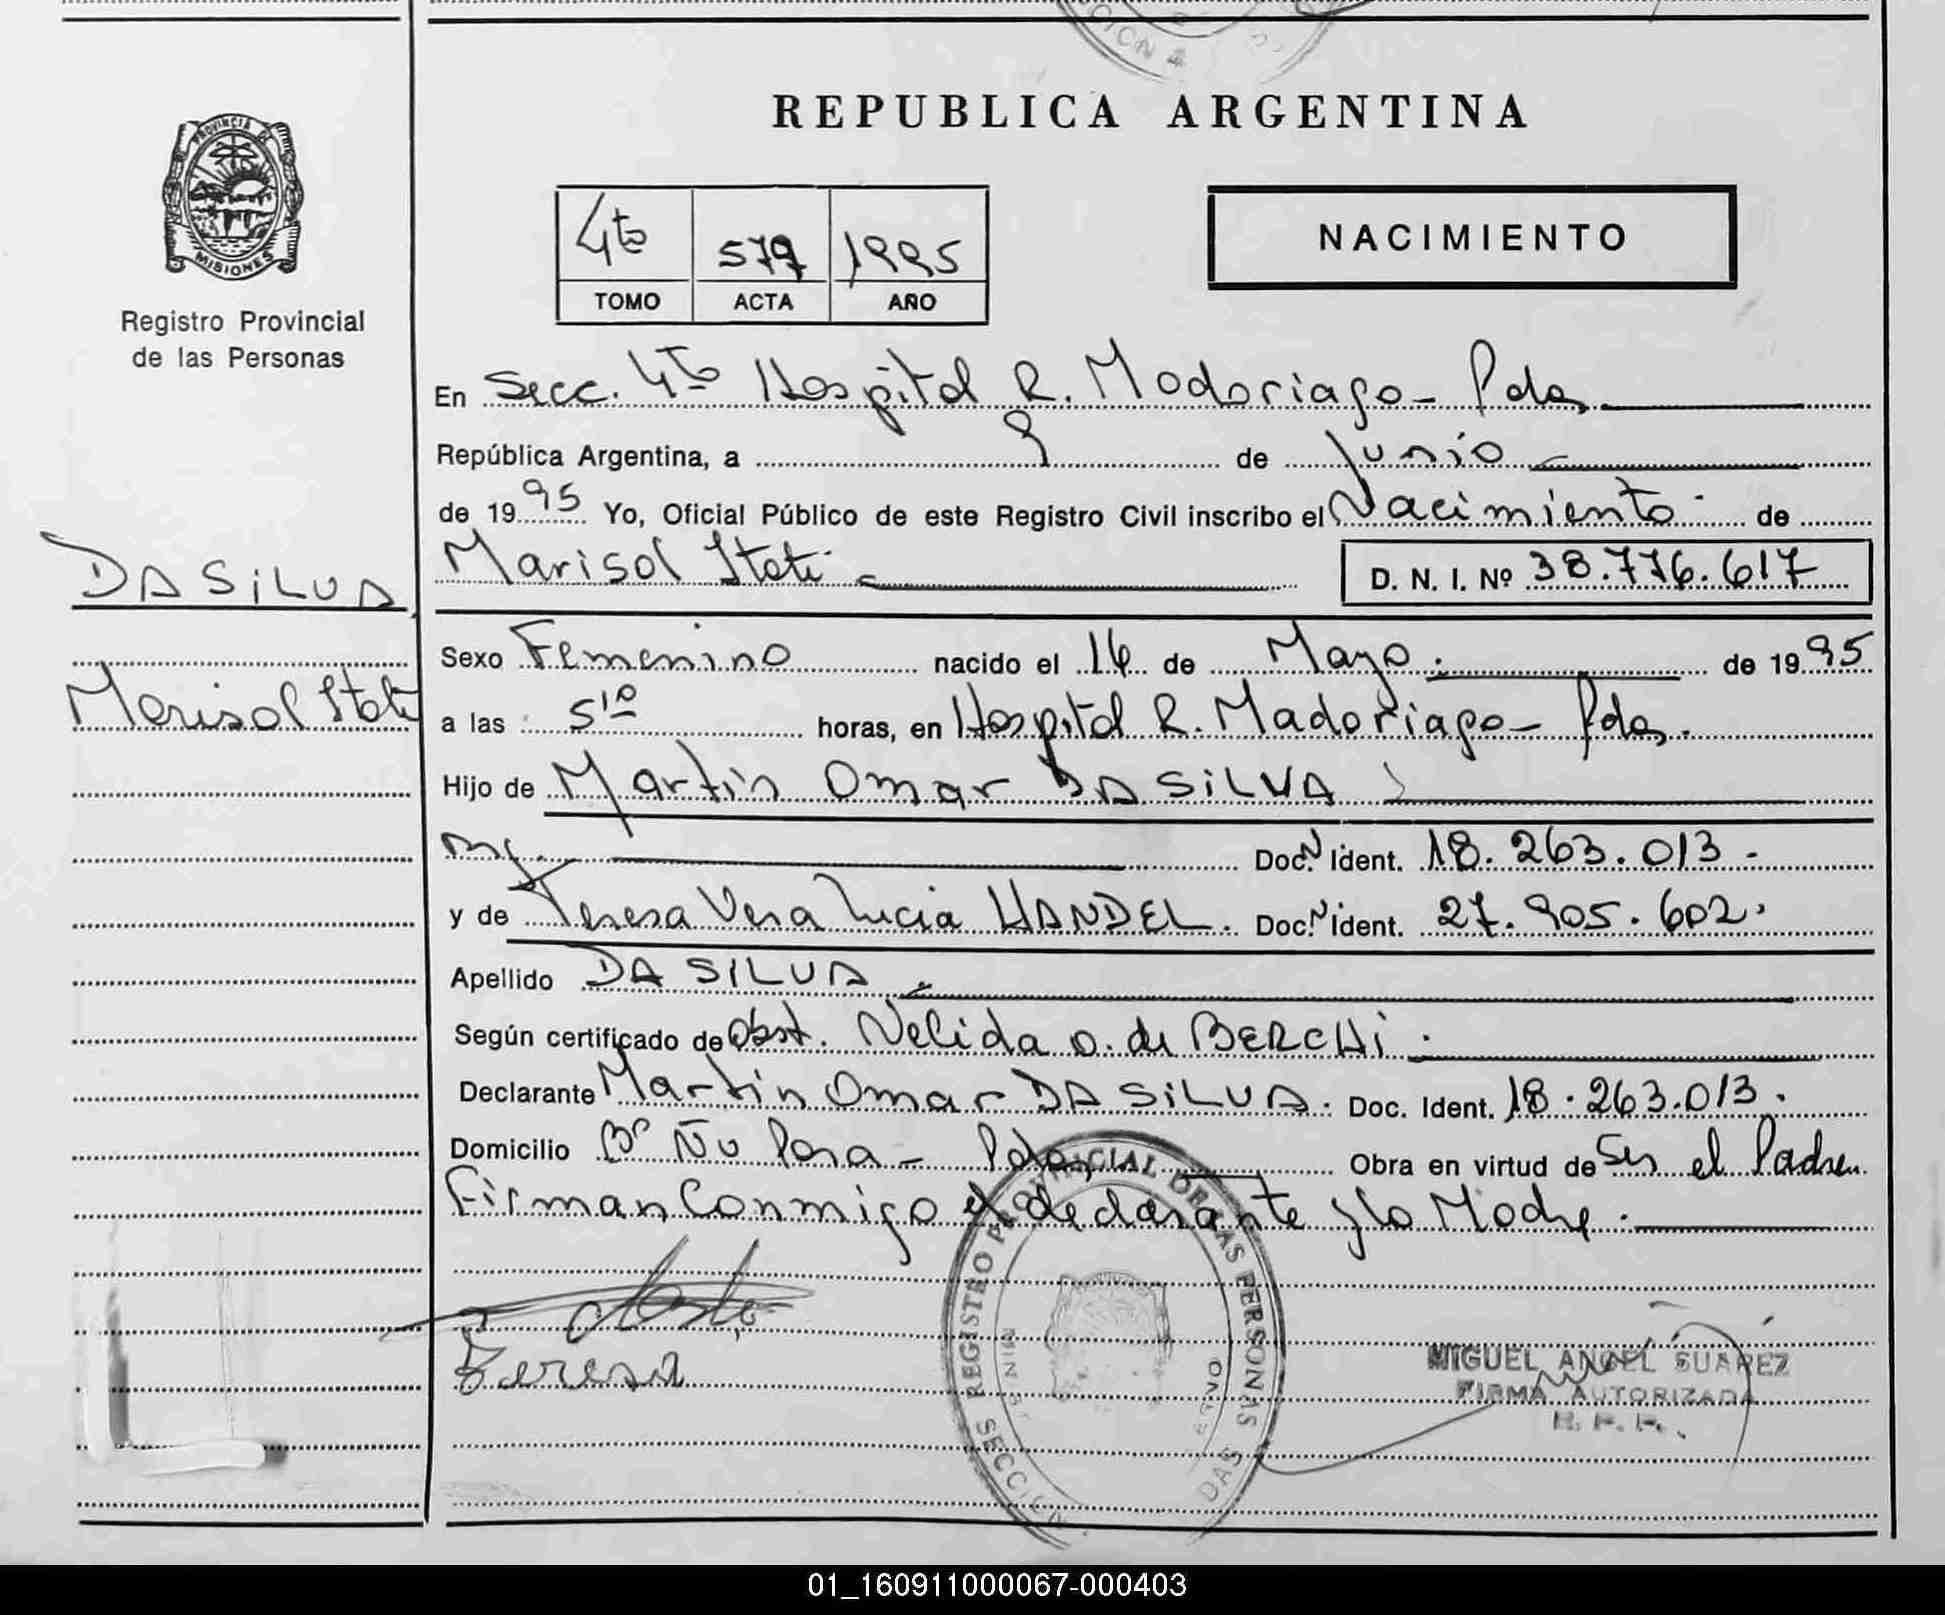 CION 4
REPUBLICA ARGENTINA
PROVINCIA DE
MISIONES
Registro Provincial
de las Personas
4to 579 1995
TOMO ACTA AÑO
NACIMIENTO
En Secc. 4to Hospital R. Madariaga - Pdas
República Argentina, a 9 de Junio
de 1995 Yo, Oficial Público de este Registro Civil inscribo el Nacimiento de
Marisol Itati D. N. I. Nº 38.776.617
DA SILVA,
Marisol Itati
Sexo Femenino nacido el 14 de Mayo. de 1995
a las 5:10 horas, en Hospital R. Madariaga - Pdas.
Hijo de Martin Omar DA SILVA
Doc. N Ident. 18.263.013 -
y de Teresa Vera Lucia HANDEL. Doc. N Ident. 27.905.602.
Apellido DA SILVA
Según certificado de Obst. Nelida O. de BERCHI.
Declarante Martin Omar DA SILVA. Doc. Ident. 18.263.013.
Domicilio Bº Ñu Pora - Pdas Obra en virtud de Ser el Padre.
Firman Conmigo el declarante y la Madre.
Teresa
REGISTRO PROVINCIAL DE LAS PERSONAS
SECCION
DAS
MIGUEL ANGEL SUAREZ
FIRMA AUTORIZADA
R. P. P.
01_160911000067-000403